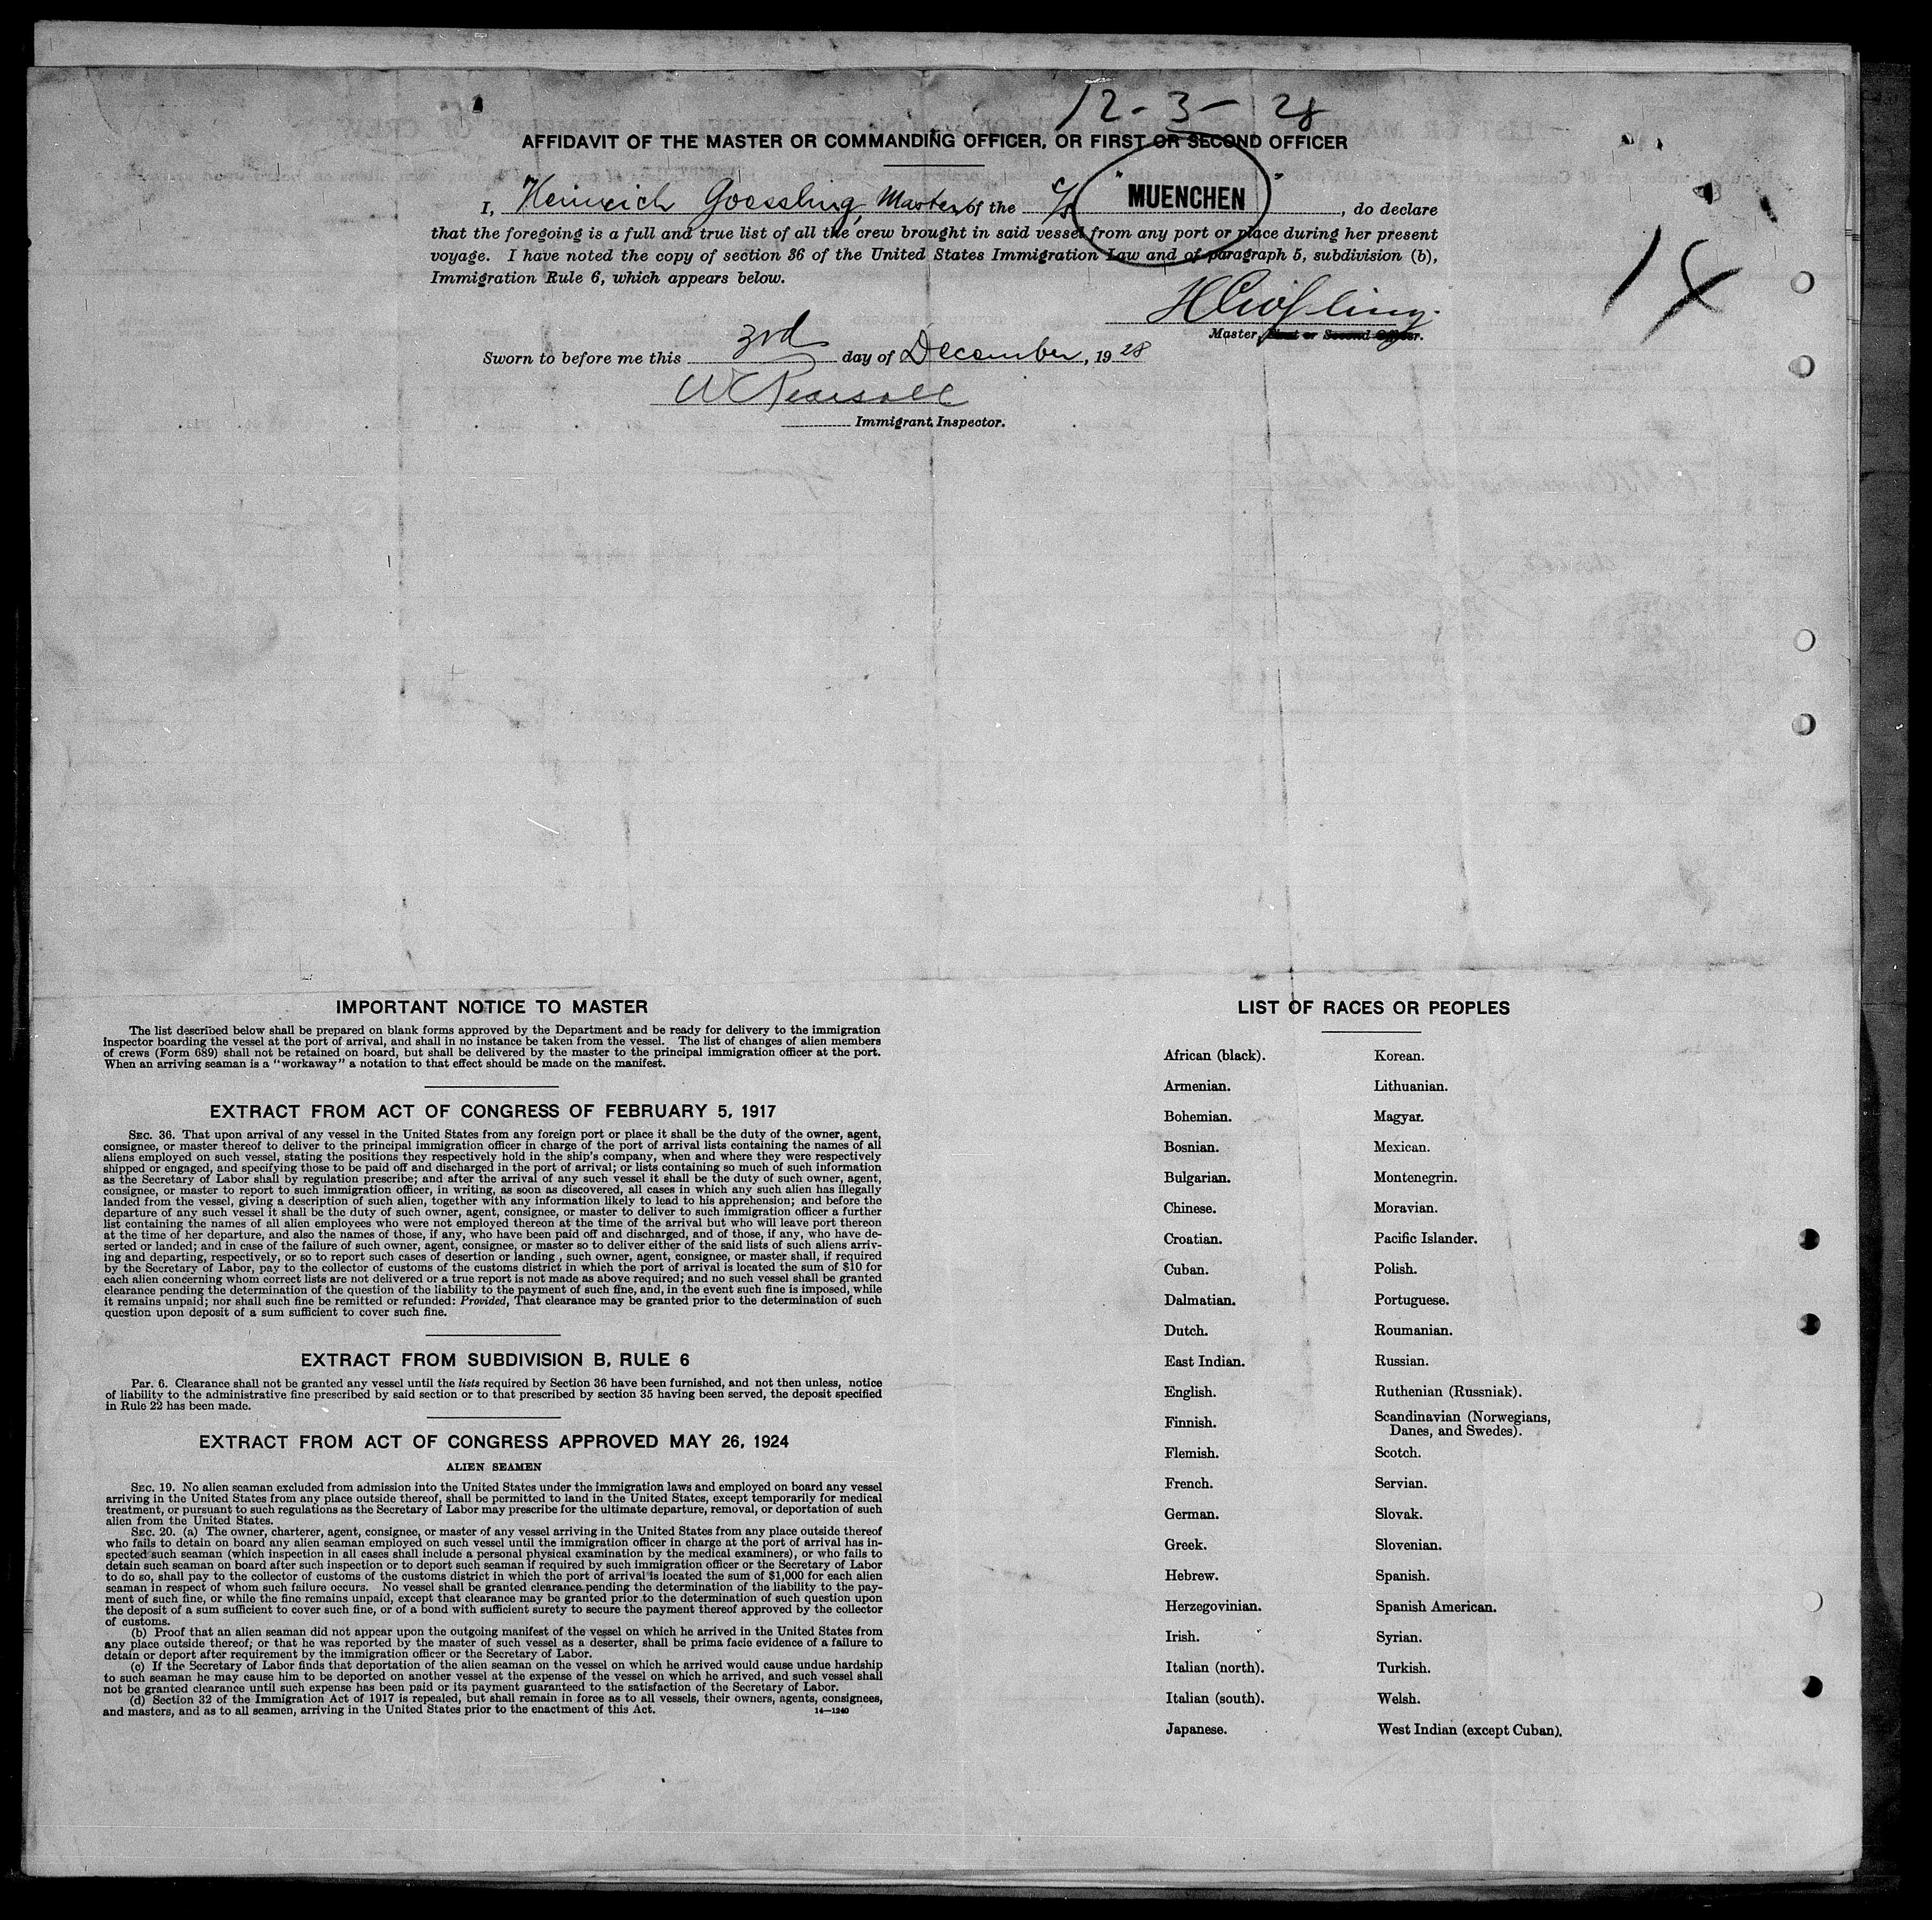 12-3-28
AFFIDAVIT OF THE MASTER OR COMMANDING OFFICER, OR FIRST OR SECOND OFFICER
I, Heinrich Goessling, Master, of the S/S "MUENCHEN", do declare
that the foregoing is a full and true list of all the crew brought in said vessel from any port or place during her present
voyage. I have noted the copy of section 36 of the United States Immigration Law and of paragraph 5, subdivision (b),
Immigration Rule 6, which appears below.
14
HGoessling.
Master, First or Second Officer.
Sworn to before me this 3rd day of December, 1928
WCPearsall
Immigrant Inspector.
IMPORTANT NOTICE TO MASTER
The list described below shall be prepared on blank forms approved by the Department and be ready for delivery to the immigration
inspector boarding the vessel at the port of arrival, and shall in no instance be taken from the vessel. The list of changes of alien members
of crews (Form 689) shall not be retained on board, but shall be delivered by the master to the principal immigration officer at the port.
When an arriving seaman is a "workaway" a notation to that effect should be made on the manifest.
EXTRACT FROM ACT OF CONGRESS OF FEBRUARY 5, 1917
SEC. 36. That upon arrival of any vessel in the United States from any foreign port or place it shall be the duty of the owner, agent,
consignee, or master thereof to deliver to the principal immigration officer in charge of the port of arrival lists containing the names of all
aliens employed on such vessel, stating the positions they respectively hold in the ship's company, when and where they were respectively
shipped or engaged, and specifying those to be paid off and discharged in the port of arrival; or lists containing so much of such information
as the Secretary of Labor shall by regulation prescribe; and after the arrival of any such vessel it shall be the duty of such owner, agent,
consignee, or master to report to such immigration officer, in writing, as soon as discovered, all cases in which any such alien has illegally
landed from the vessel, giving a description of such alien, together with any information likely to lead to his apprehension; and before the
departure of any such vessel it shall be the duty of such owner, agent, consignee, or master to deliver to such immigration officer a further
list containing the names of all alien employees who were not employed thereon at the time of the arrival but who will leave port thereon
at the time of her departure, and also the names of those, if any, who have been paid off and discharged, and of those, if any, who have de-
serted or landed; and in case of the failure of such owner, agent, consignee, or master so to deliver either of the said lists of such aliens arriv-
ing and departing, respectively, or so to report such cases of desertion or landing, such owner, agent, consignee, or master shall, if required
by the Secretary of Labor, pay to the collector of customs of the customs district in which the port of arrival is located the sum of $10 for
each alien concerning whom correct lists are not delivered or a true report is not made as above required; and no such vessel shall be granted
clearance pending the determination of the question of the liability to the payment of such fine, and, in the event such fine is imposed, while
it remains unpaid; nor shall such fine be remitted or refunded: Provided, That clearance may be granted prior to the determination of such
question upon deposit of a sum sufficient to cover such fine.
EXTRACT FROM SUBDIVISION B, RULE 6
Par. 6. Clearance shall not be granted any vessel until the lists required by Section 36 have been furnished, and not then unless, notice
of liability to the administrative fine prescribed by said section or to that prescribed by section 35 having been served, the deposit specified
in Rule 22 has been made.
EXTRACT FROM ACT OF CONGRESS APPROVED MAY 26, 1924
ALIEN SEAMEN
SEC. 19. No alien seaman excluded from admission into the United States under the immigration laws and employed on board any vessel
arriving in the United States from any place outside thereof, shall be permitted to land in the United States, except temporarily for medical
treatment, or pursuant to such regulations as the Secretary of Labor may prescribe for the ultimate departure, removal, or deportation of such
alien from the United States.
SEC. 20. (a) The owner, charterer, agent, consignee, or master of any vessel arriving in the United States from any place outside thereof
who fails to detain on board any alien seaman employed on such vessel until the immigration officer in charge at the port of arrival has in-
spected such seaman (which inspection in all cases shall include a personal physical examination by the medical examiners), or who fails to
detain such seaman on board after such inspection or to deport such seaman if required by such immigration officer or the Secretary of Labor
to do so, shall pay to the collector of customs of the customs district in which the port of arrival is located the sum of $1,000 for each alien
seaman in respect of whom such failure occurs. No vessel shall be granted clearance pending the determination of the liability to the pay-
ment of such fine, or while the fine remains unpaid, except that clearance may be granted prior to the determination of such question upon
the deposit of a sum sufficient to cover such fine, or of a bond with sufficient surety to secure the payment thereof approved by the collector
of customs.
(b) Proof that an alien seaman did not appear upon the outgoing manifest of the vessel on which he arrived in the United States from
any place outside thereof; or that he was reported by the master of such vessel as a deserter, shall be prima facie evidence of a failure to
detain or deport after requirement by the immigration officer or the Secretary of Labor.
(c) If the Secretary of Labor finds that deportation of the alien seaman on the vessel on which he arrived would cause undue hardship
to such seaman he may cause him to be deported on another vessel at the expense of the vessel on which he arrived, and such vessel shall
not be granted clearance until such expense has been paid or its payment guaranteed to the satisfaction of the Secretary of Labor.
(d) Section 32 of the Immigration Act of 1917 is repealed, but shall remain in force as to all vessels, their owners, agents, consignees,
and masters, and as to all seamen, arriving in the United States prior to the enactment of this Act.
14—1240
LIST OF RACES OR PEOPLES
African (black).
Armenian.
Bohemian.
Bosnian.
Bulgarian.
Chinese.
Croatian.
Cuban.
Dalmatian.
Dutch.
East Indian.
English.
Finnish.
Flemish.
French.
German.
Greek.
Hebrew.
Herzegovinian.
Irish.
Italian (north).
Italian (south).
Japanese.
Korean.
Lithuanian.
Magyar.
Mexican.
Montenegrin.
Moravian.
Pacific Islander.
Polish.
Portuguese.
Roumanian.
Russian.
Ruthenian (Russniak).
Scandinavian (Norwegians,
Danes, and Swedes).
Scotch.
Servian.
Slovak.
Slovenian.
Spanish.
Spanish American.
Syrian.
Turkish.
Welsh.
West Indian (except Cuban).